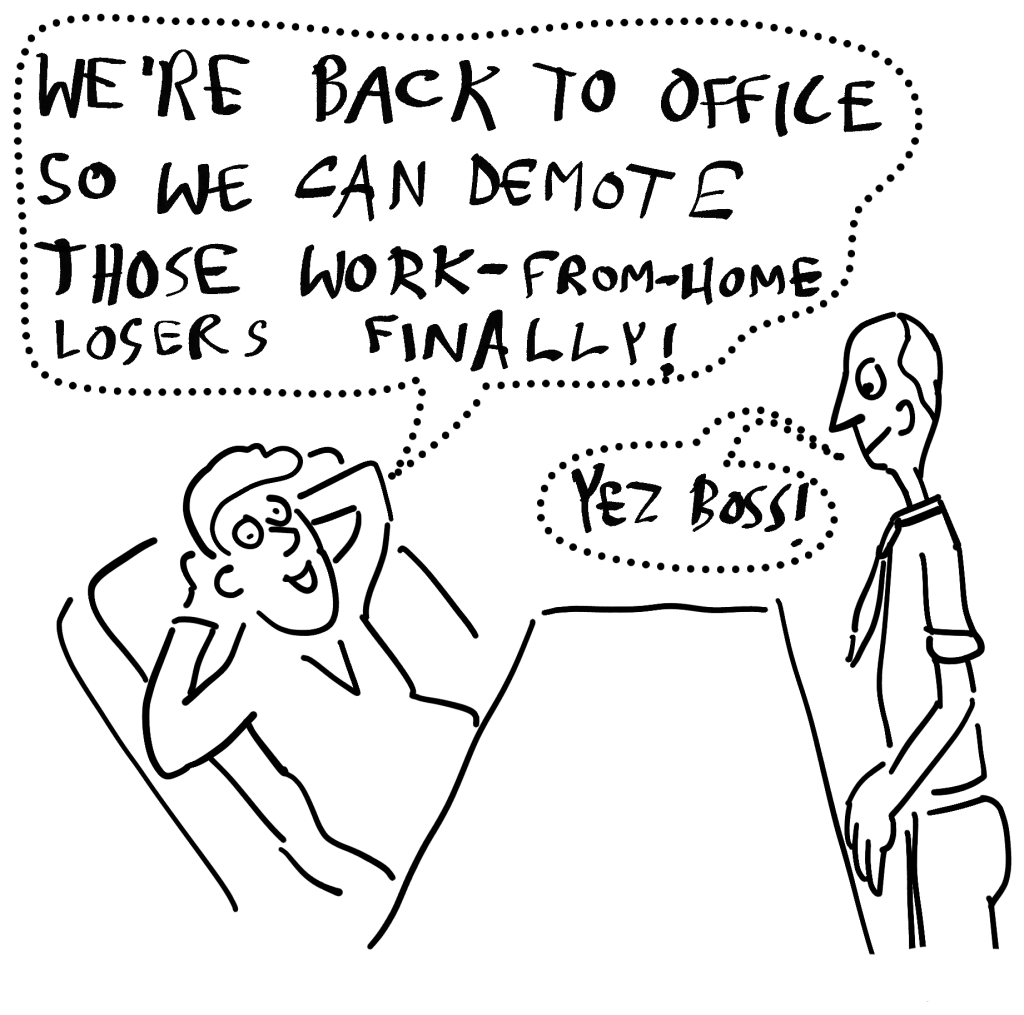 WE'RE BACK TO OFFICE
SO WE CAN DEMOTE
THOSE WORK-FROM-HOME
LOSERS FINALLY!
YEZ BOSS!